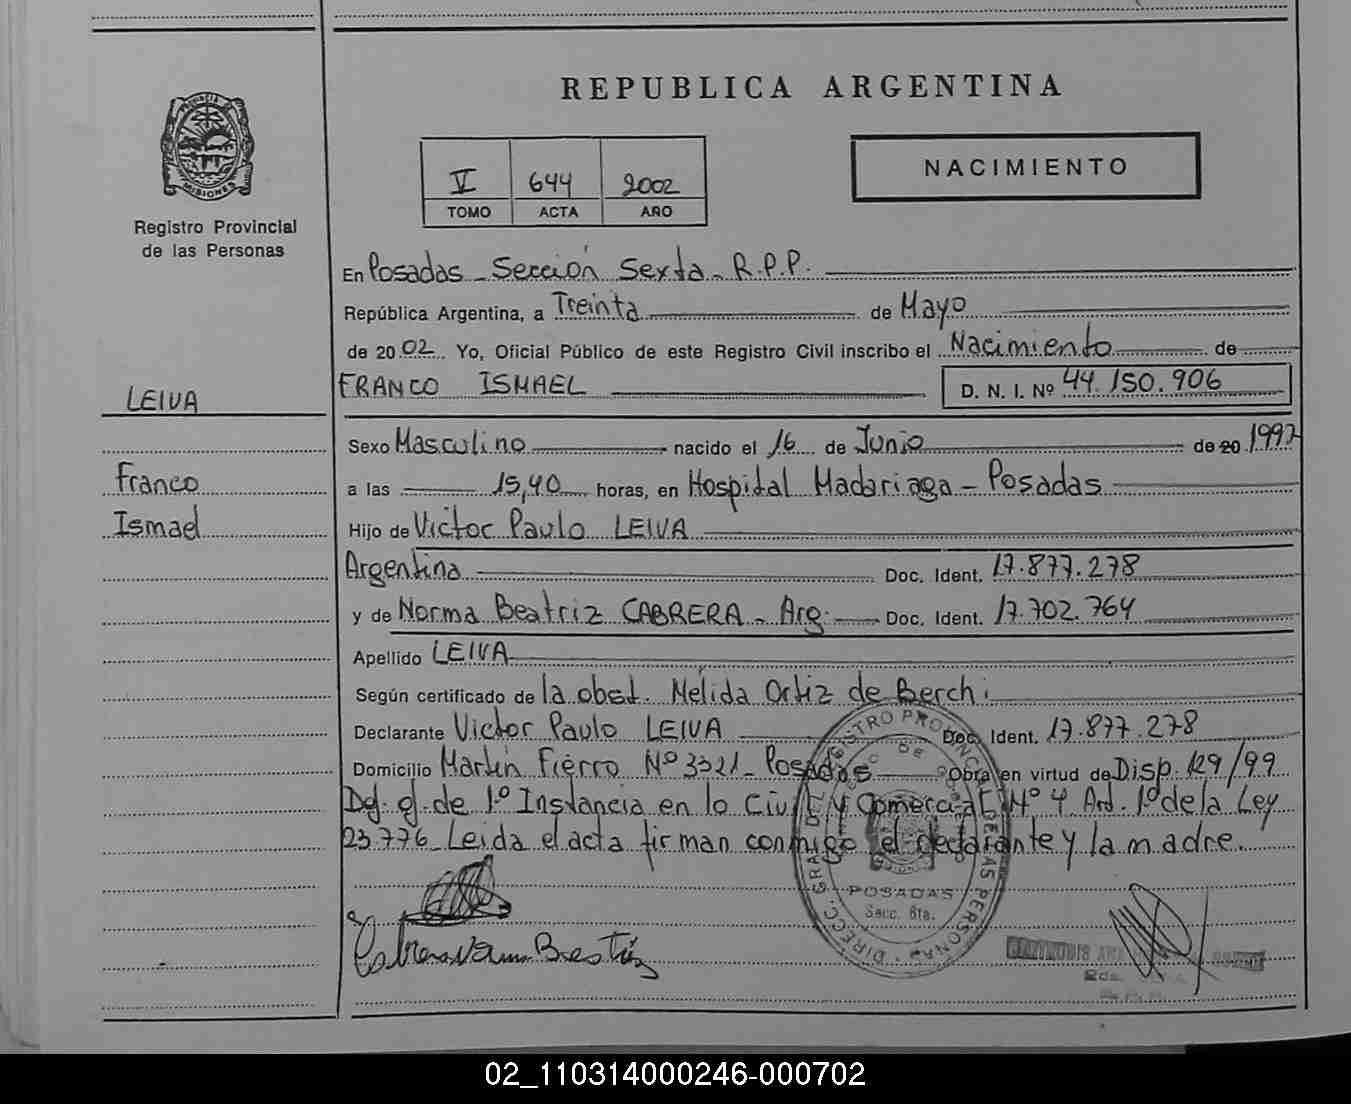 REPUBLICA ARGENTINA
PROVINCIA DE
MISIONES
Registro Provincial
de las Personas
V 644 2002
TOMO ACTA AÑO
NACIMIENTO
En Posadas - Sección Sexta - R.P.P.
República Argentina, a Treinta de Mayo
de 2002 Yo, Oficial Público de este Registro Civil inscribo el Nacimiento de
FRANCO ISMAEL D. N. I. Nº 44.150.906
LEIVA
Franco
Ismael
Sexo Masculino nacido el 16 de Junio de 20 1997
a las 15,40 horas, en Hospital Madariaga - Posadas
Hijo de Victor Paulo LEIVA
Argentina Doc. Ident. 17.877.278
y de Norma Beatriz CABRERA - Arg. Doc. Ident. 17.702.764
Apellido LEIVA
Según certificado de la obst. Nélida Ortiz de Berchi
Declarante Victor Paulo LEIVA Doc. Ident. 17.877.278
Domicilio Martín Fierro Nº 3321 - Posadas Obra en virtud de Disp. 129/99
de 1º Instancia en lo Civil y Comercial Nº 4 Art. 1º de la Ley
23.776 - Leída el acta firman conmigo el declarante y la madre.
DIRECC. GRAL DEL REGISTRO PROVINCIAL DE LAS PERSONAS
POSADAS
Secc. 6ta.
02_110314000246-000702